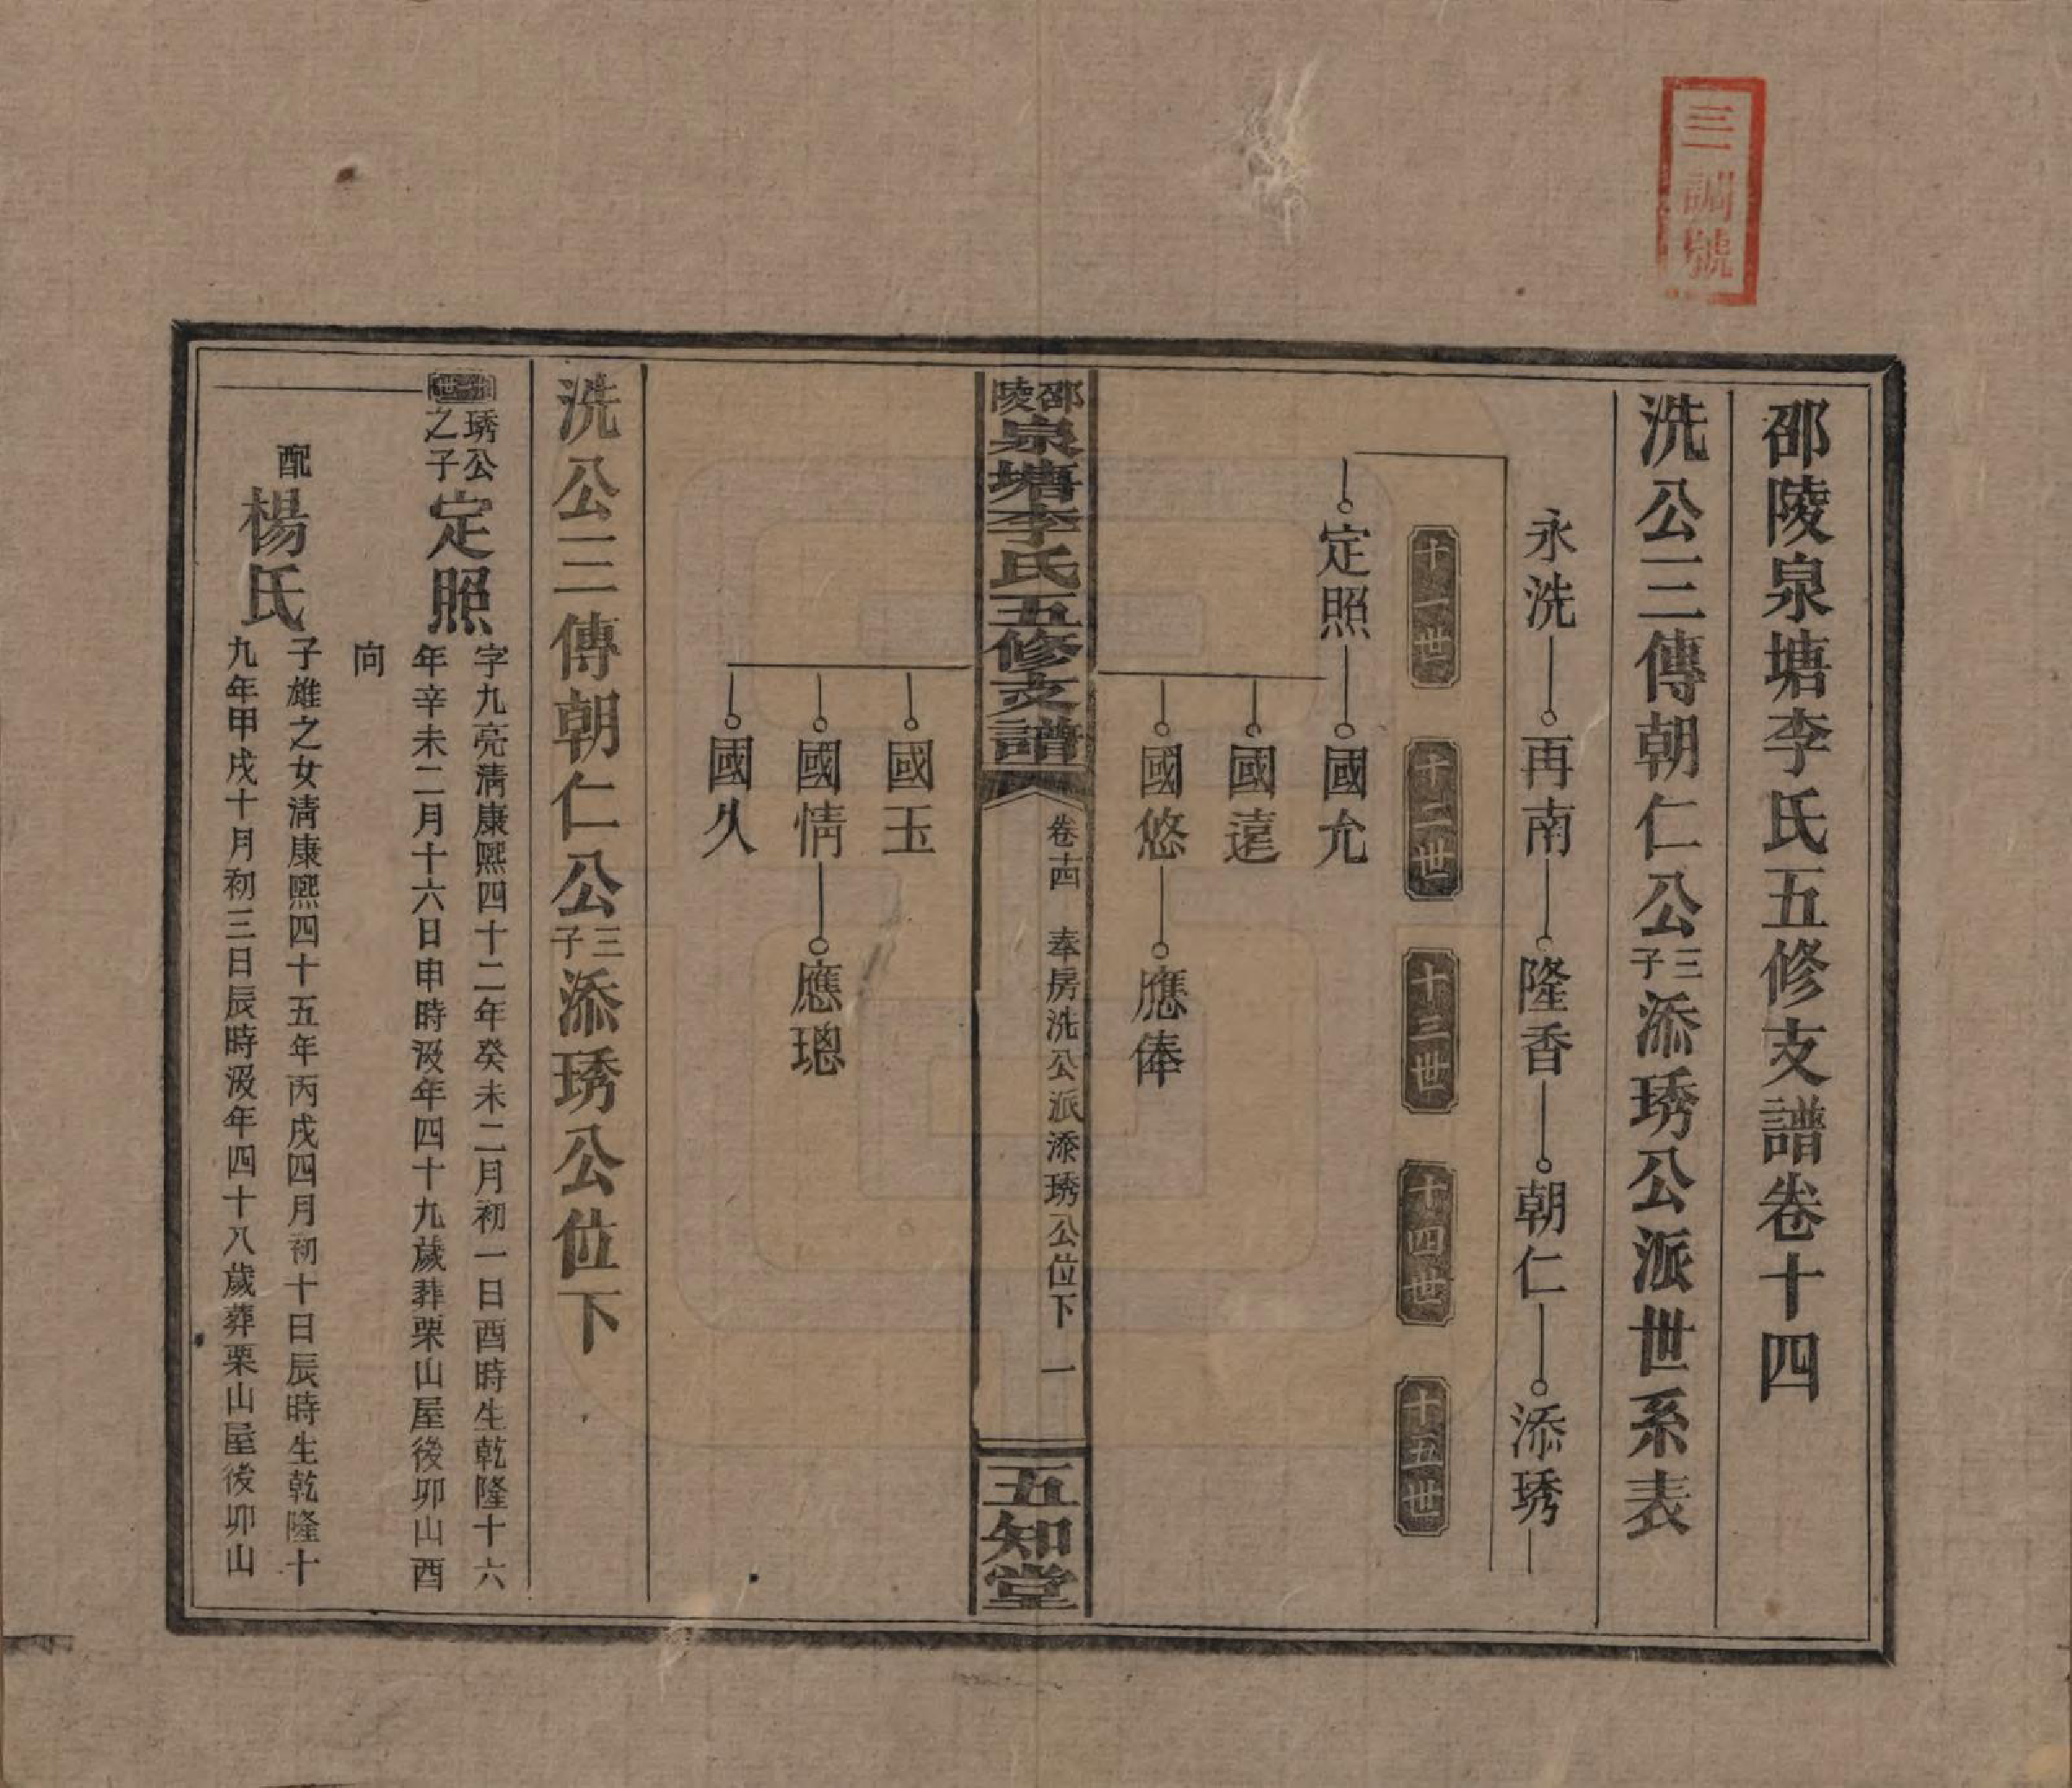 三調號
邵陵泉塘李氏五修支譜卷十四
洗公三傳朝仁公三子添琇公派世系表
永洗 再南 隆香 朝仁 添琇
十一世 十二世 十三世 十四世 十五世
定照 國允
國遠
國悠 應俸
邵陵泉塘李氏五修支譜 卷十四 奉房洗公派添琇公位下 一 五知堂
國玉
國情 應璁
國久
洗公三傳朝仁公三子添琇公位下
琇公之子定照 字九亮淸康熙四十二年癸未二月初一日酉時生乾隆十六
年辛未二月十六日申時歿年四十九歲葬栗山屋後卯山酉
向
配楊氏 子雄之女淸康熙四十五年丙戌四月初十日辰時生乾隆十
九年甲戌十月初三日辰時歿年四十八歲葬栗山屋後卯山